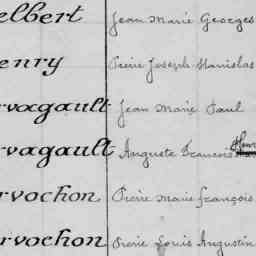 elbert Jean Marie Georges
enry Pierre Joseph Stanislas
rvagault Jean Marie Paul
rvagault Auguste Francois Henri
rvochon Pierre Marie françois
rvochon Pierre Louis Augustin